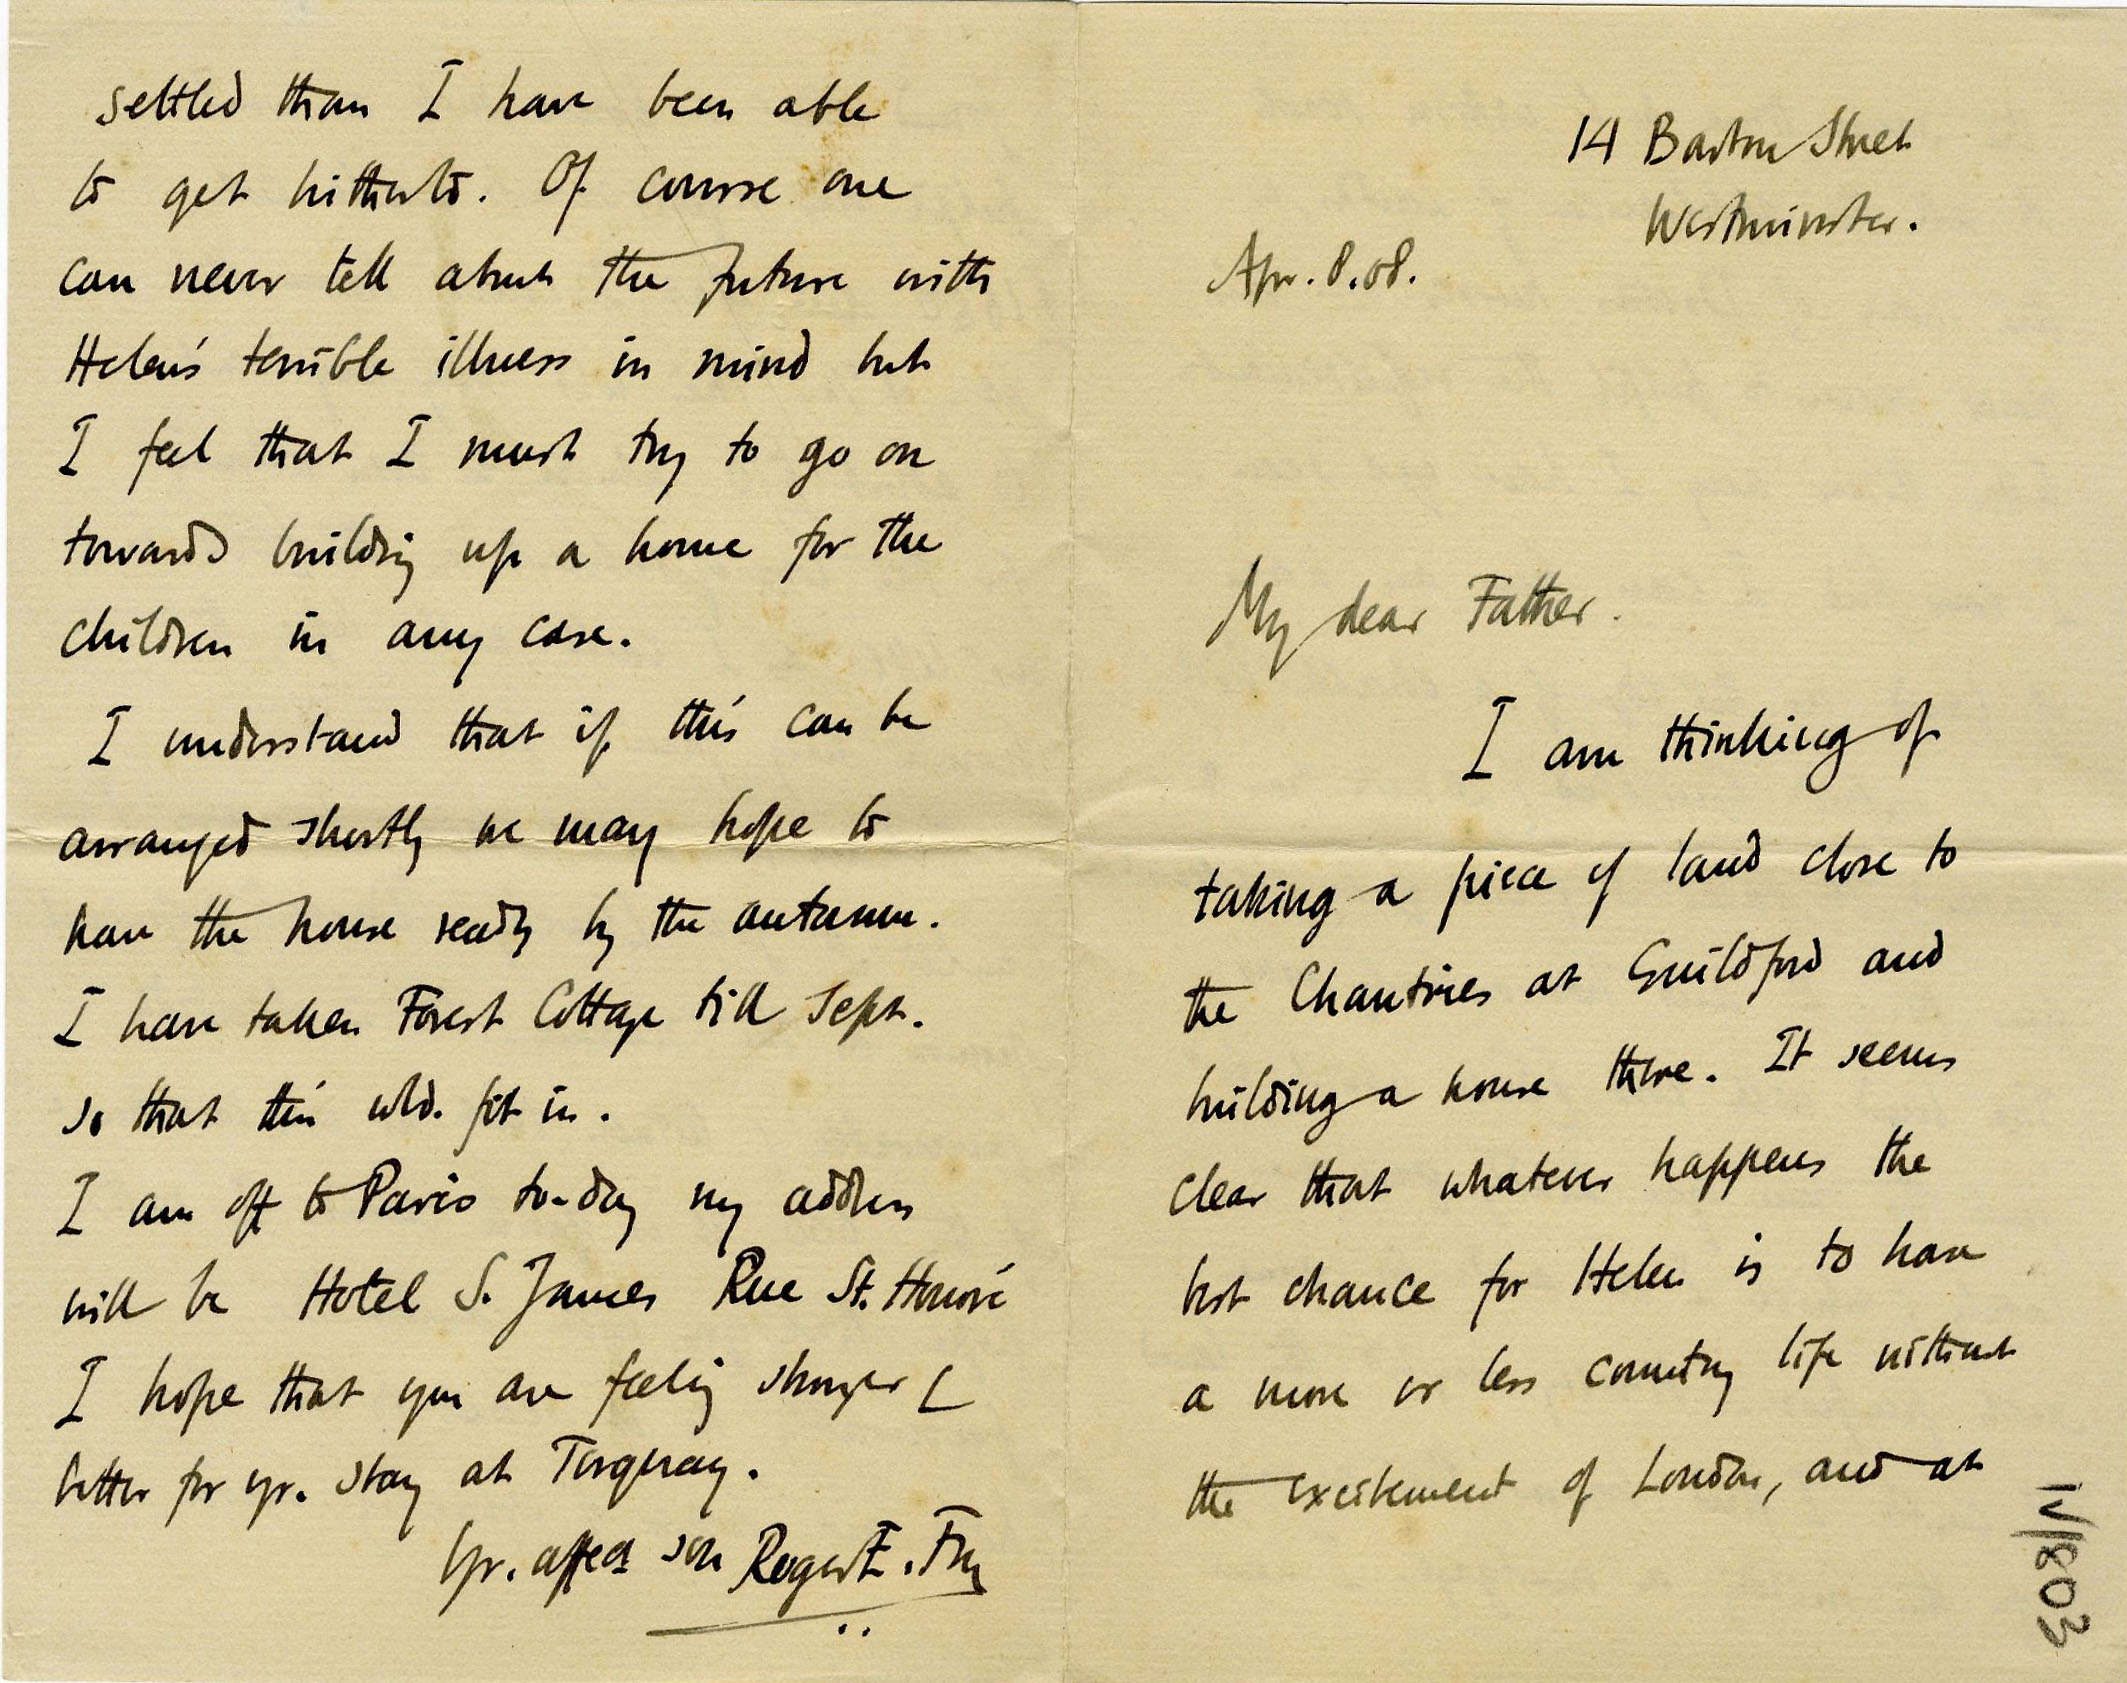 14 Barton Street
Westminster.
Apr. 8. 08.
My dear Father.
I am thinking of
taking a piece of land close to
the Chantries at Guildford and
building a house there. It seems
clear that whatever happens the
best chance for Helen is to have
a more or less country life without
the excitement of London, and at
IV/803
settled than I have been able
to get hitherto. Of course one
can never tell about the future with
Helen's terrible illness in mind but
I feel that I must try to go on
towards building up a home for the
children in any case.
I understand that if this can be
arranged shortly we may hope to
have the house ready by the autumn.
I have taken Forest Cottage till Sept.
so that this wld. fit in.
I am off to Paris to-day my address
will be Hotel S. James Rue St. Honoré
I hope that you are feeling stronger &
better for yr. stay at Torquay.
Yr. affect son Roger E. Fry